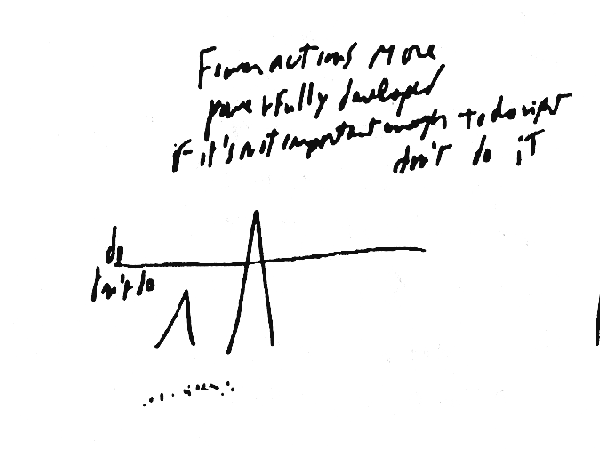 Fewer actions more
powerfully developed
if it's not important enough to do right
don't do it
do
don't do